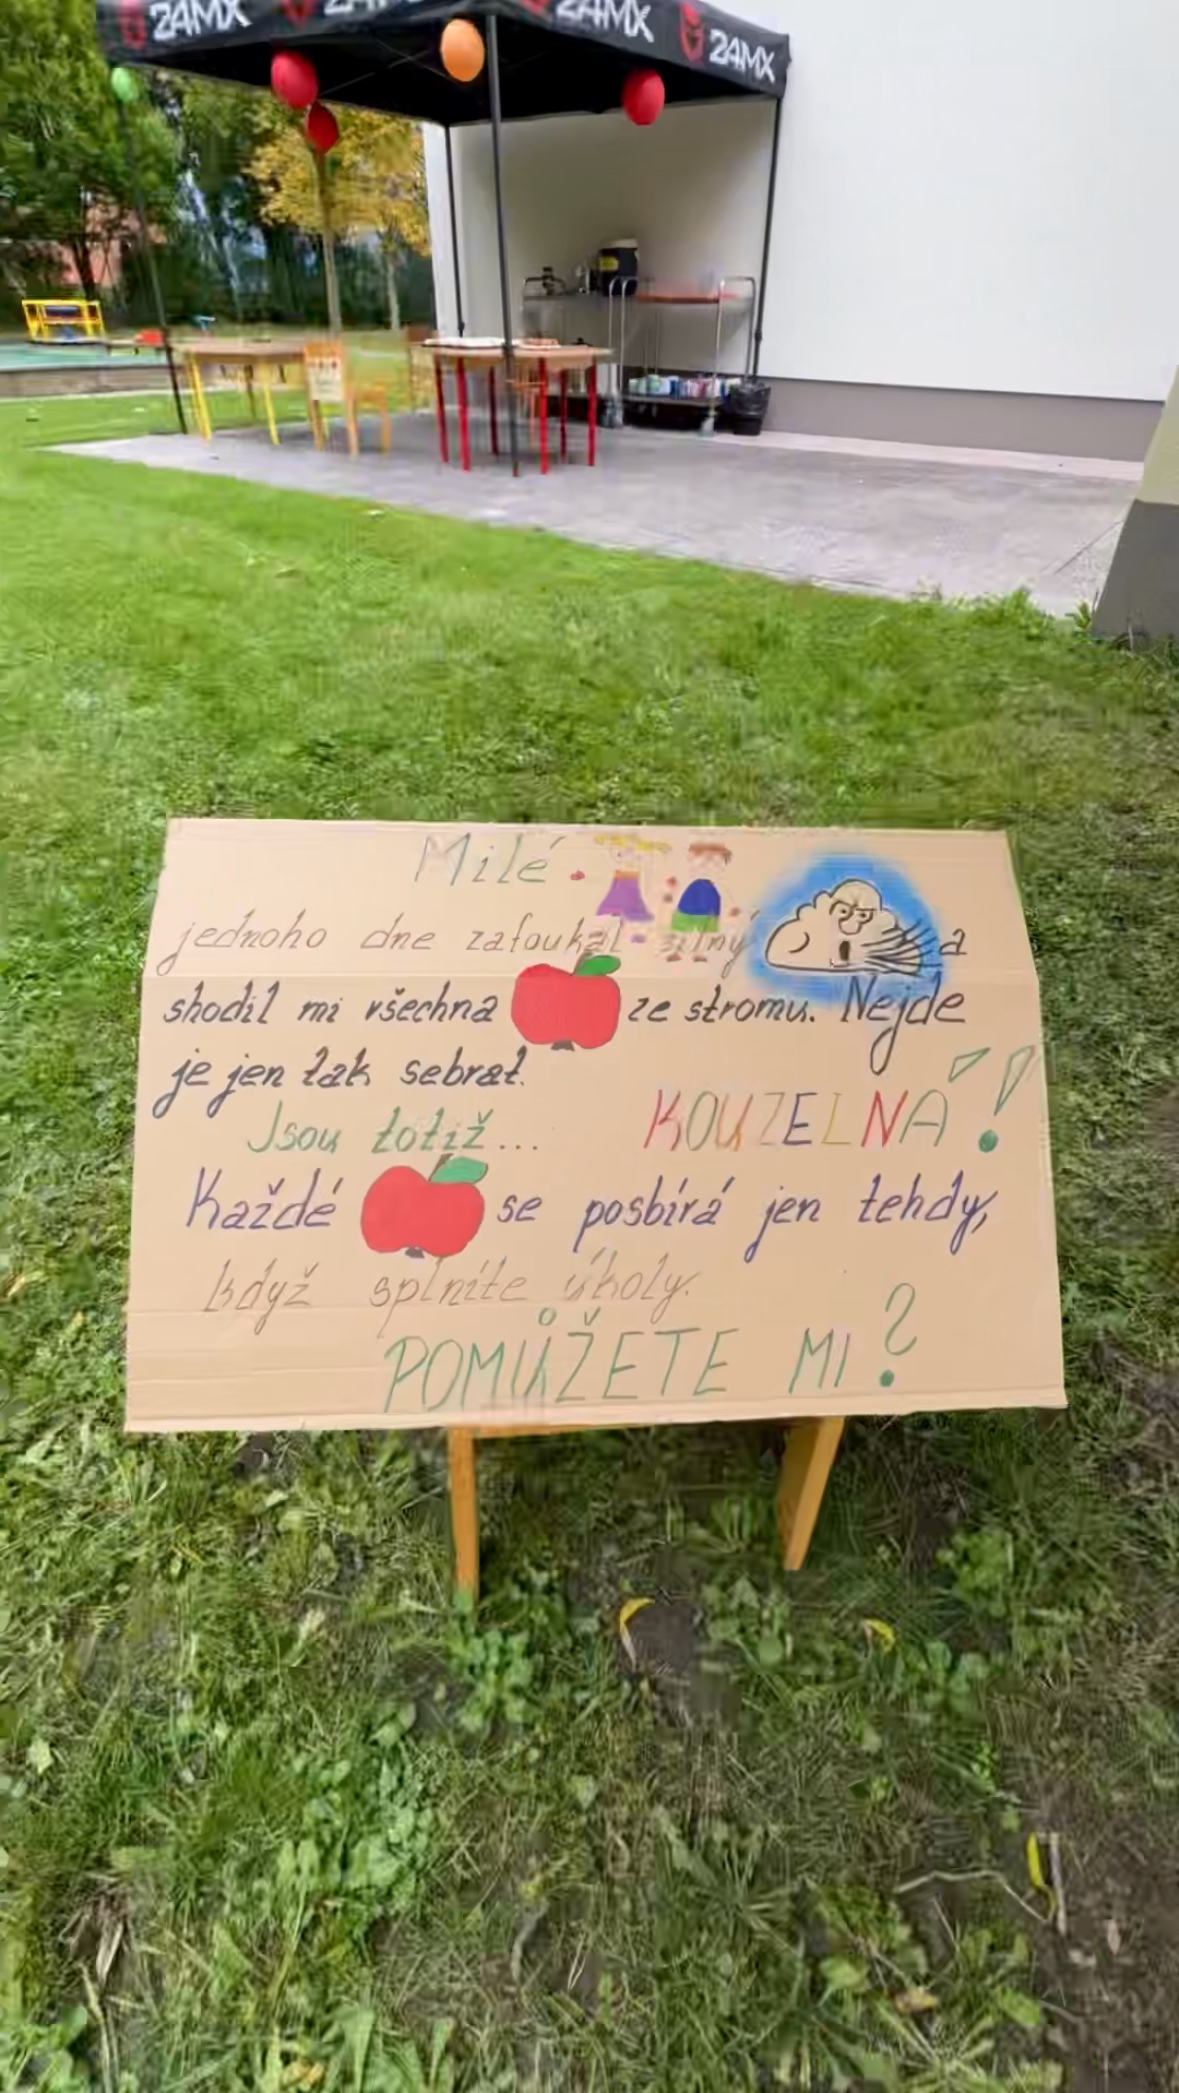 24MX
24MX
24MX
Milé
jednoho dne zafoukal silný a
shodil mi všechna ze stromu. Nejde
je jen tak sebrat.
Jsou totiž... KOUZELNÁ!
Každé se posbírá jen tehdy,
když splníte úkoly.
POMŮŽETE MI?